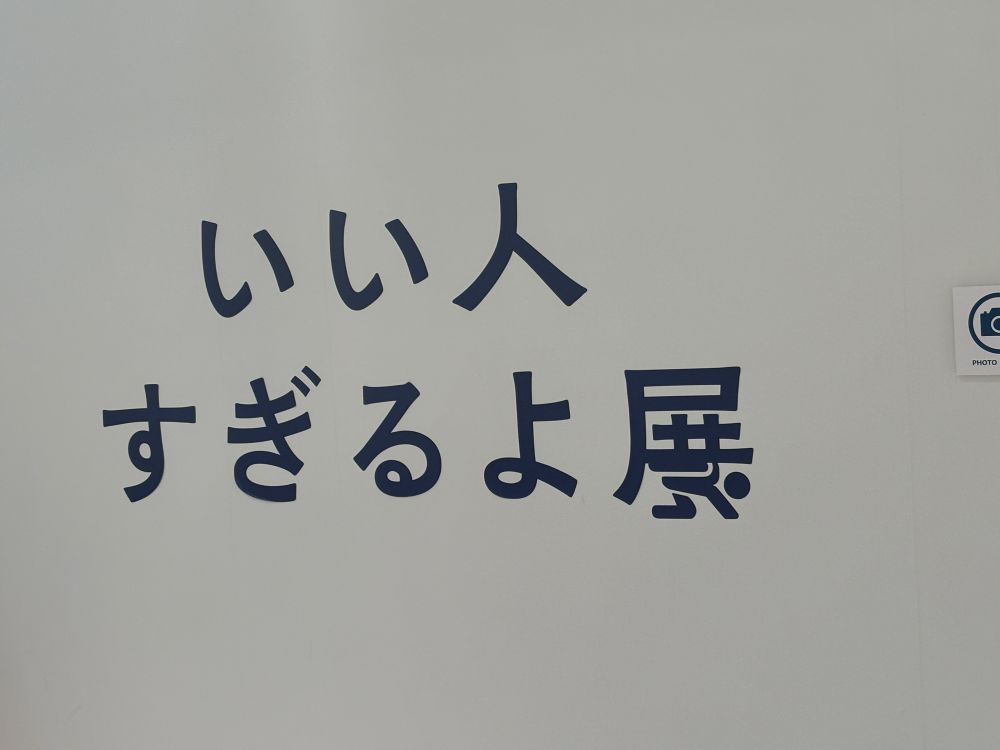 いい人
すぎるよ展
PHOTO